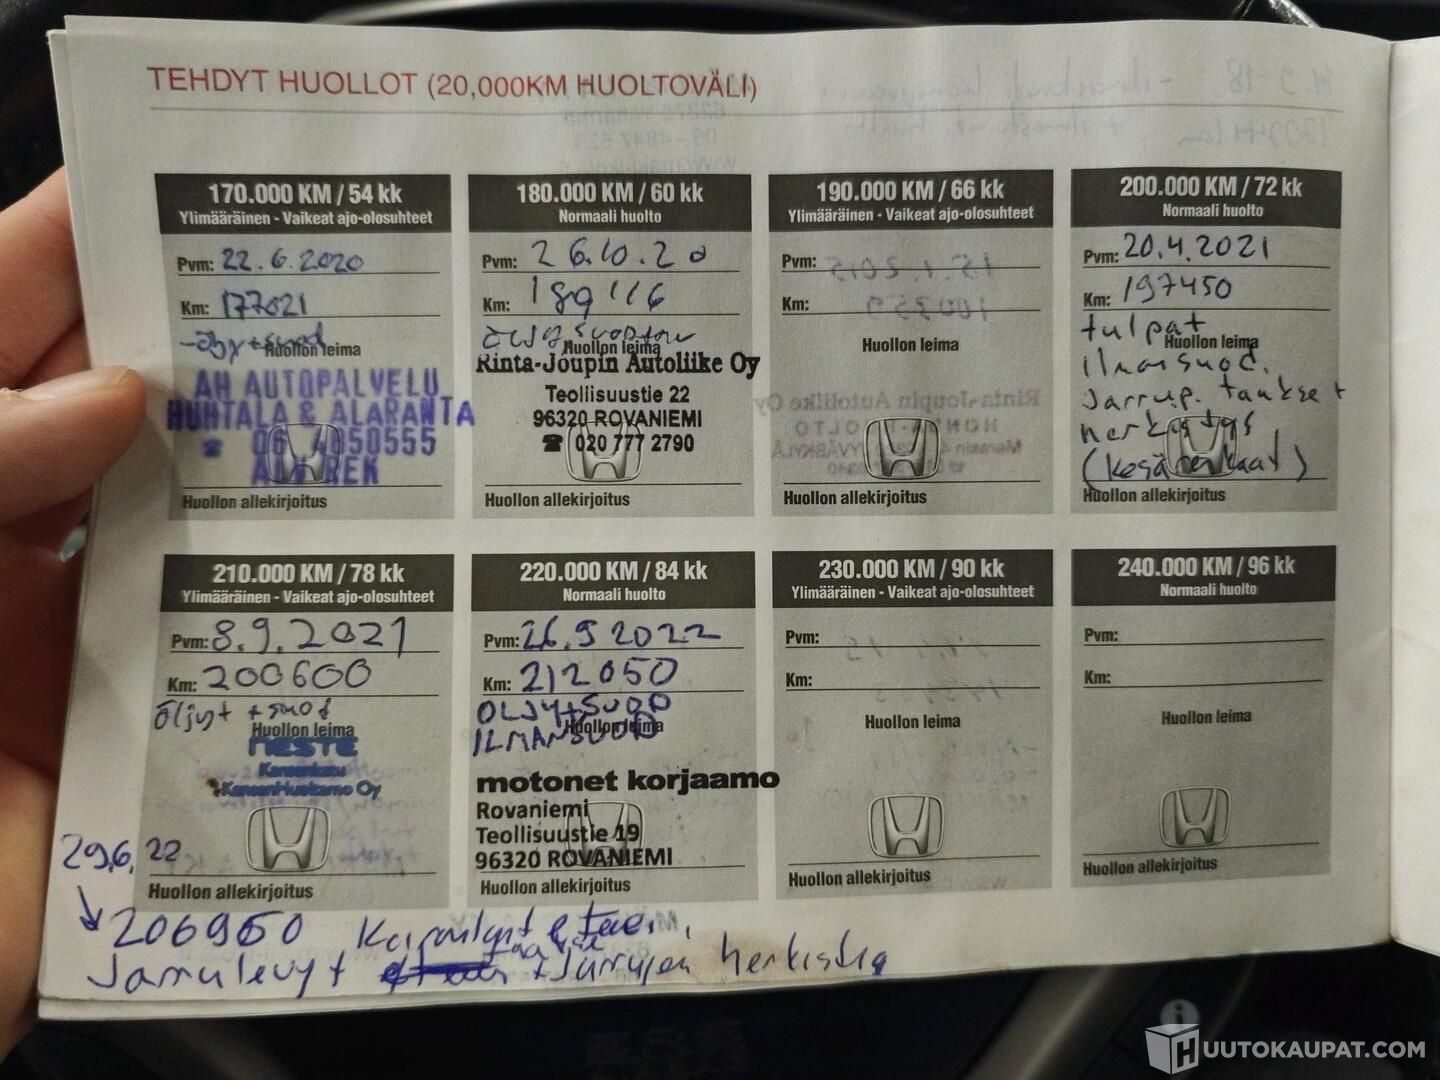 TEHDYT HUOLLOT (20,000KM HUOLTOVÄLI)
170.000 KM / 54 kk
Ylimääräinen - Vaikeat ajo-olosuhteet
Pvm: 22.6.2020
Km: 177021
-öljy+suod
Huollon leima
AH AUTOPALVELU
HUHTALA & ALARANTA
☎ 06 4850555
Huollon allekirjoitus
180.000 KM / 60 kk
Normaali huolto
Pvm: 26.10.20
Km: 189116
Huollon leima
Rinta-Joupin Autoliike Oy
Teollisuustie 22
96320 ROVANIEMI
☎ 020 777 2790
Huollon allekirjoitus
190.000 KM / 66 kk
Ylimääräinen - Vaikeat ajo-olosuhteet
Pvm:
Km:
Huollon leima
Huollon allekirjoitus
200.000 KM / 72 kk
Normaali huolto
Pvm: 20.4.2021
Km: 197450
tulpat
Huollon leima
ilmansuod.
Jarrup. taakse +
herkistys
(kesärenkaat)
Huollon allekirjoitus
210.000 KM / 78 kk
Ylimääräinen - Vaikeat ajo-olosuhteet
Pvm: 8.9.2021
Km: 200600
Öljyt + suod
Huollon leima
neste
Kansankatu
KansanHuoltamo Oy
Huollon allekirjoitus
220.000 KM / 84 kk
Normaali huolto
Pvm: 26.9 2022
Km: 212050
ÖLJY+SUOD
Huollon leima
ILMANSUOD
motonet korjaamo
Rovaniemi
Teollisuustie 19
96320 ROVANIEMI
Huollon allekirjoitus
230.000 KM / 90 kk
Ylimääräinen - Vaikeat ajo-olosuhteet
Pvm:
Km:
Huollon leima
Huollon allekirjoitus
240.000 KM / 96 kk
Normaali huolto
Pvm:
Km:
Huollon leima
Huollon allekirjoitus
29.6. 22
206950
Jarrulevyt + Jarrujen herkistys
HUUTOKAUPAT.COM